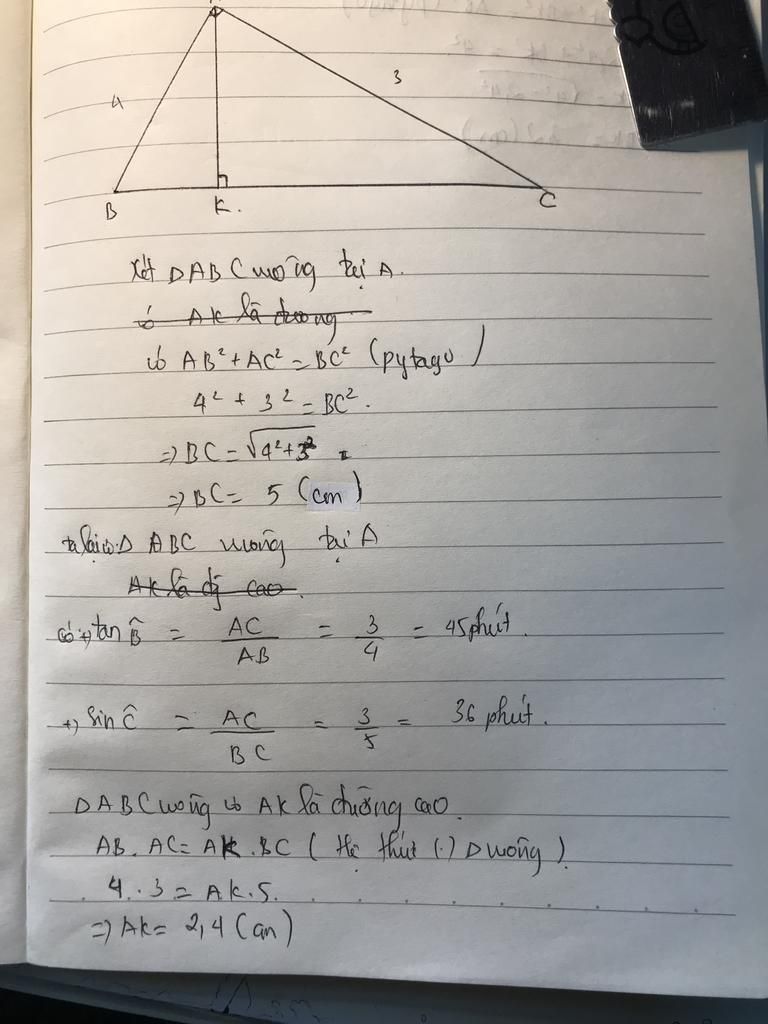 A
4
3
B
K.
C
Xét ΔABC vuông tại A.
có AK là đường
có AB² + AC² = BC² (pytago)
4² + 3² = BC².
=> BC = √4²+3²
=> BC = 5 (cm)
ta lại có Δ ABC vuông tại A
AK là đg cao.
có: +, tan B̂ = AC/AB = 3/4 = 45 phút.
+, Sin Ĉ = AC/BC = 3/5 = 36 phút.
ΔABC vuông có AK là đường cao.
AB. AC = AK. BC ( Hệ thức (.) Δ vuông )
4. 3 = AK. 5.
=> AK = 2,4 (cm)